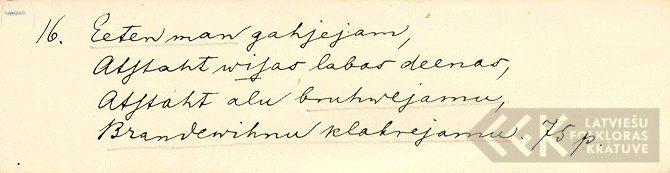 16. Eeten man gahjejam,
Atstaht wisas labas deenas,
Atstaht alu bruhwejamu,
Brandewihnu klahrejamu. 75 p.
LATVIEŠU
FOLKLORAS
KRĀTUVE